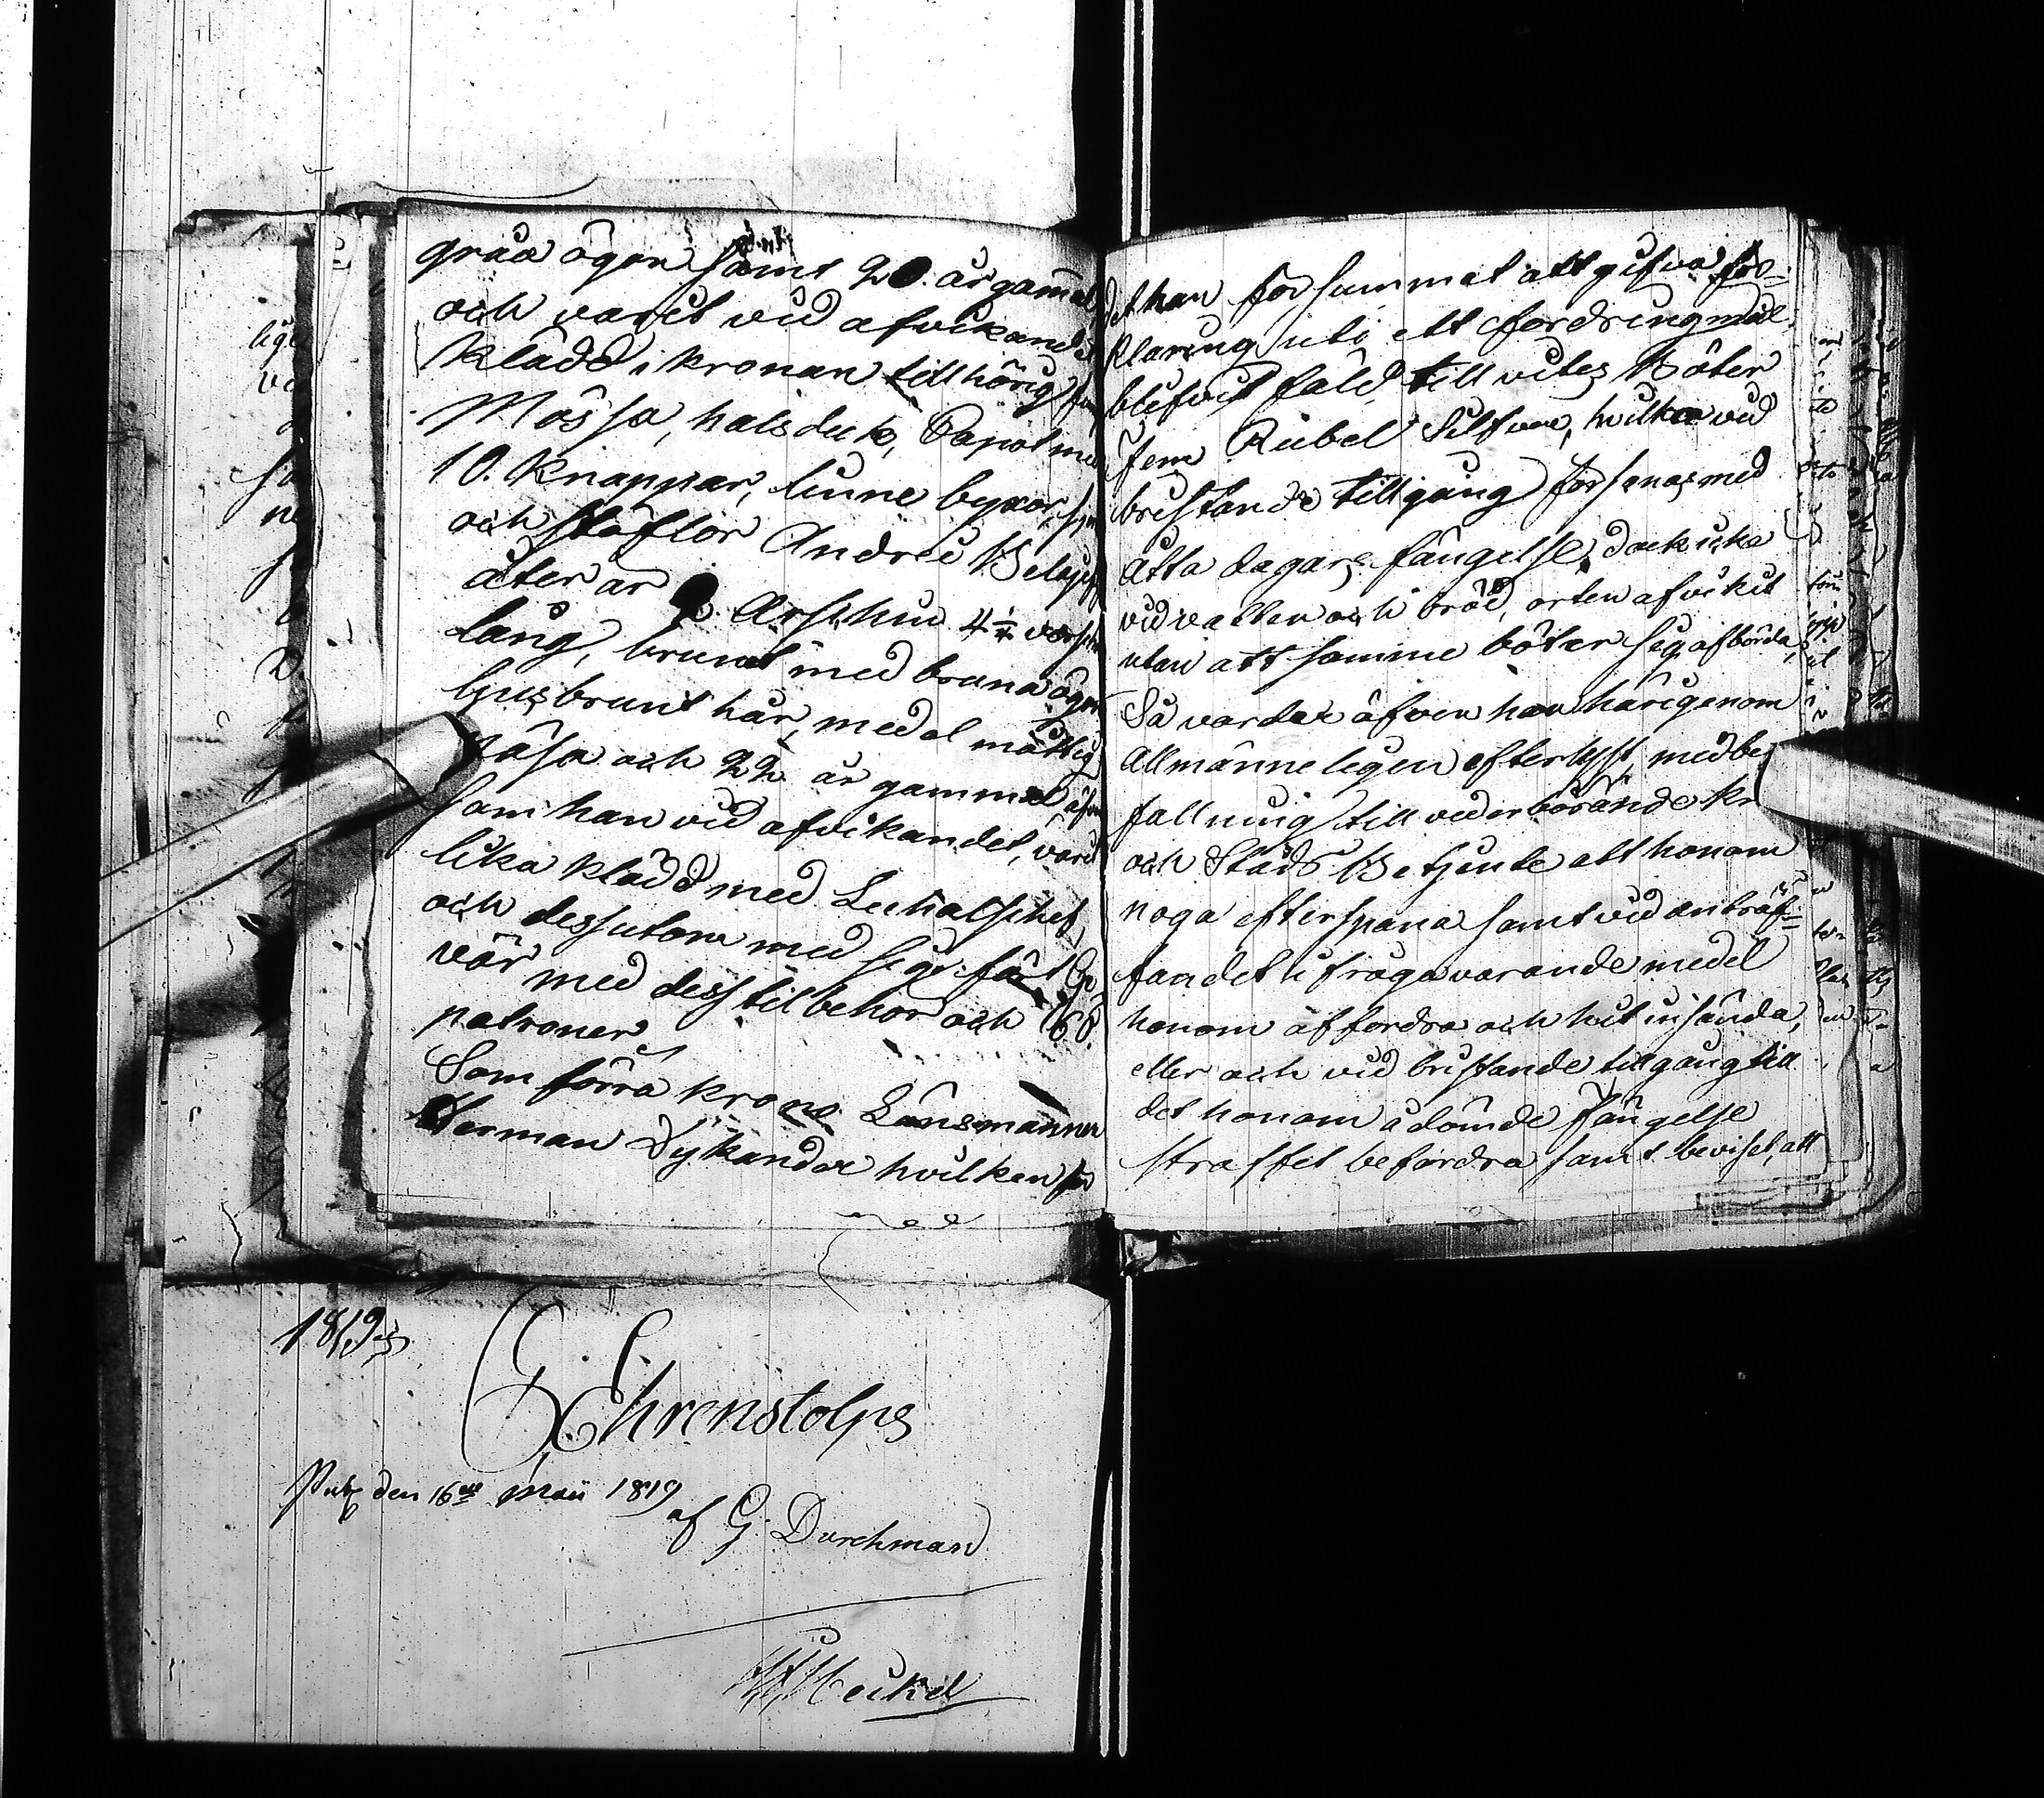 gråa ögon samt 20. år gammal
och varit vid afvikandet
klädd i kronan tillhörig
Mössa, halsduk, Capot med
10. knappar, linne byxor,
och stöflor Andrei
åter är 2 Arschin 4 1/4 versch
lång, brunet med bruna ögon
ljusbrunt hår, medelmåttig
näsa och 22 år gammal, äfven
som han vid afvikandet, varit
lika klädd med
och dessutom med sig fört Ge
vär med dess tilbehör och 60.
patroner.
Som förra krono Länsmannen
Herman Dykander hvilken för
det han försummat att gifva för-
klaring uti ett fordringmål,
blifvit fäld till vites Böter
fem Rubel Silfver, hvilka vid
bristande tillgång försonas med
åtta dagars fängelse, dock icke
vid vatten och bröd, orten afvikit
utan att samme böter sig afbörda,
Så varder äfven han härigenom
Allmänneligen efterlyst, med be
fallning till vederbörande kr
och Stads Betjente att honom
noga efterspana samt vid anträf-
fandet ifrågavarande medel
honom affordra och hit insända,
eller och vid bristande tillgång till
det honom ådömde fängelse
straffet befordra samt beviset, att
1819
G. Ehrenstolpe
Publ. den 16de Maii 1819
af G. Durchman
Heikel